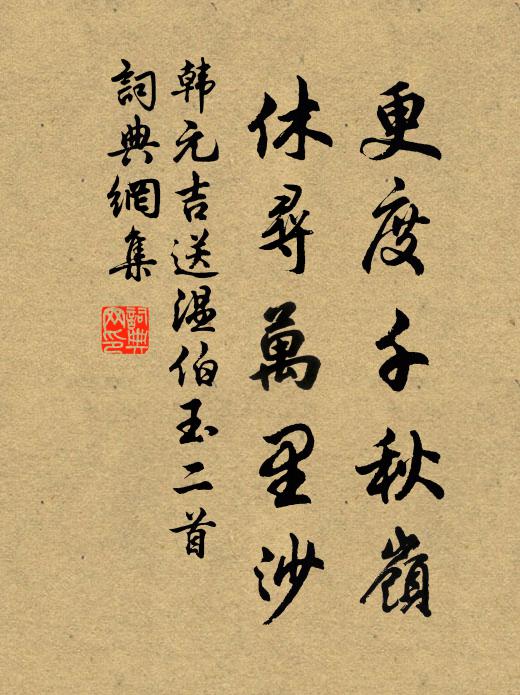 更度千秋嶺
休尋萬里沙
韩元吉送温伯玉二首
詞典網集
詞典网印